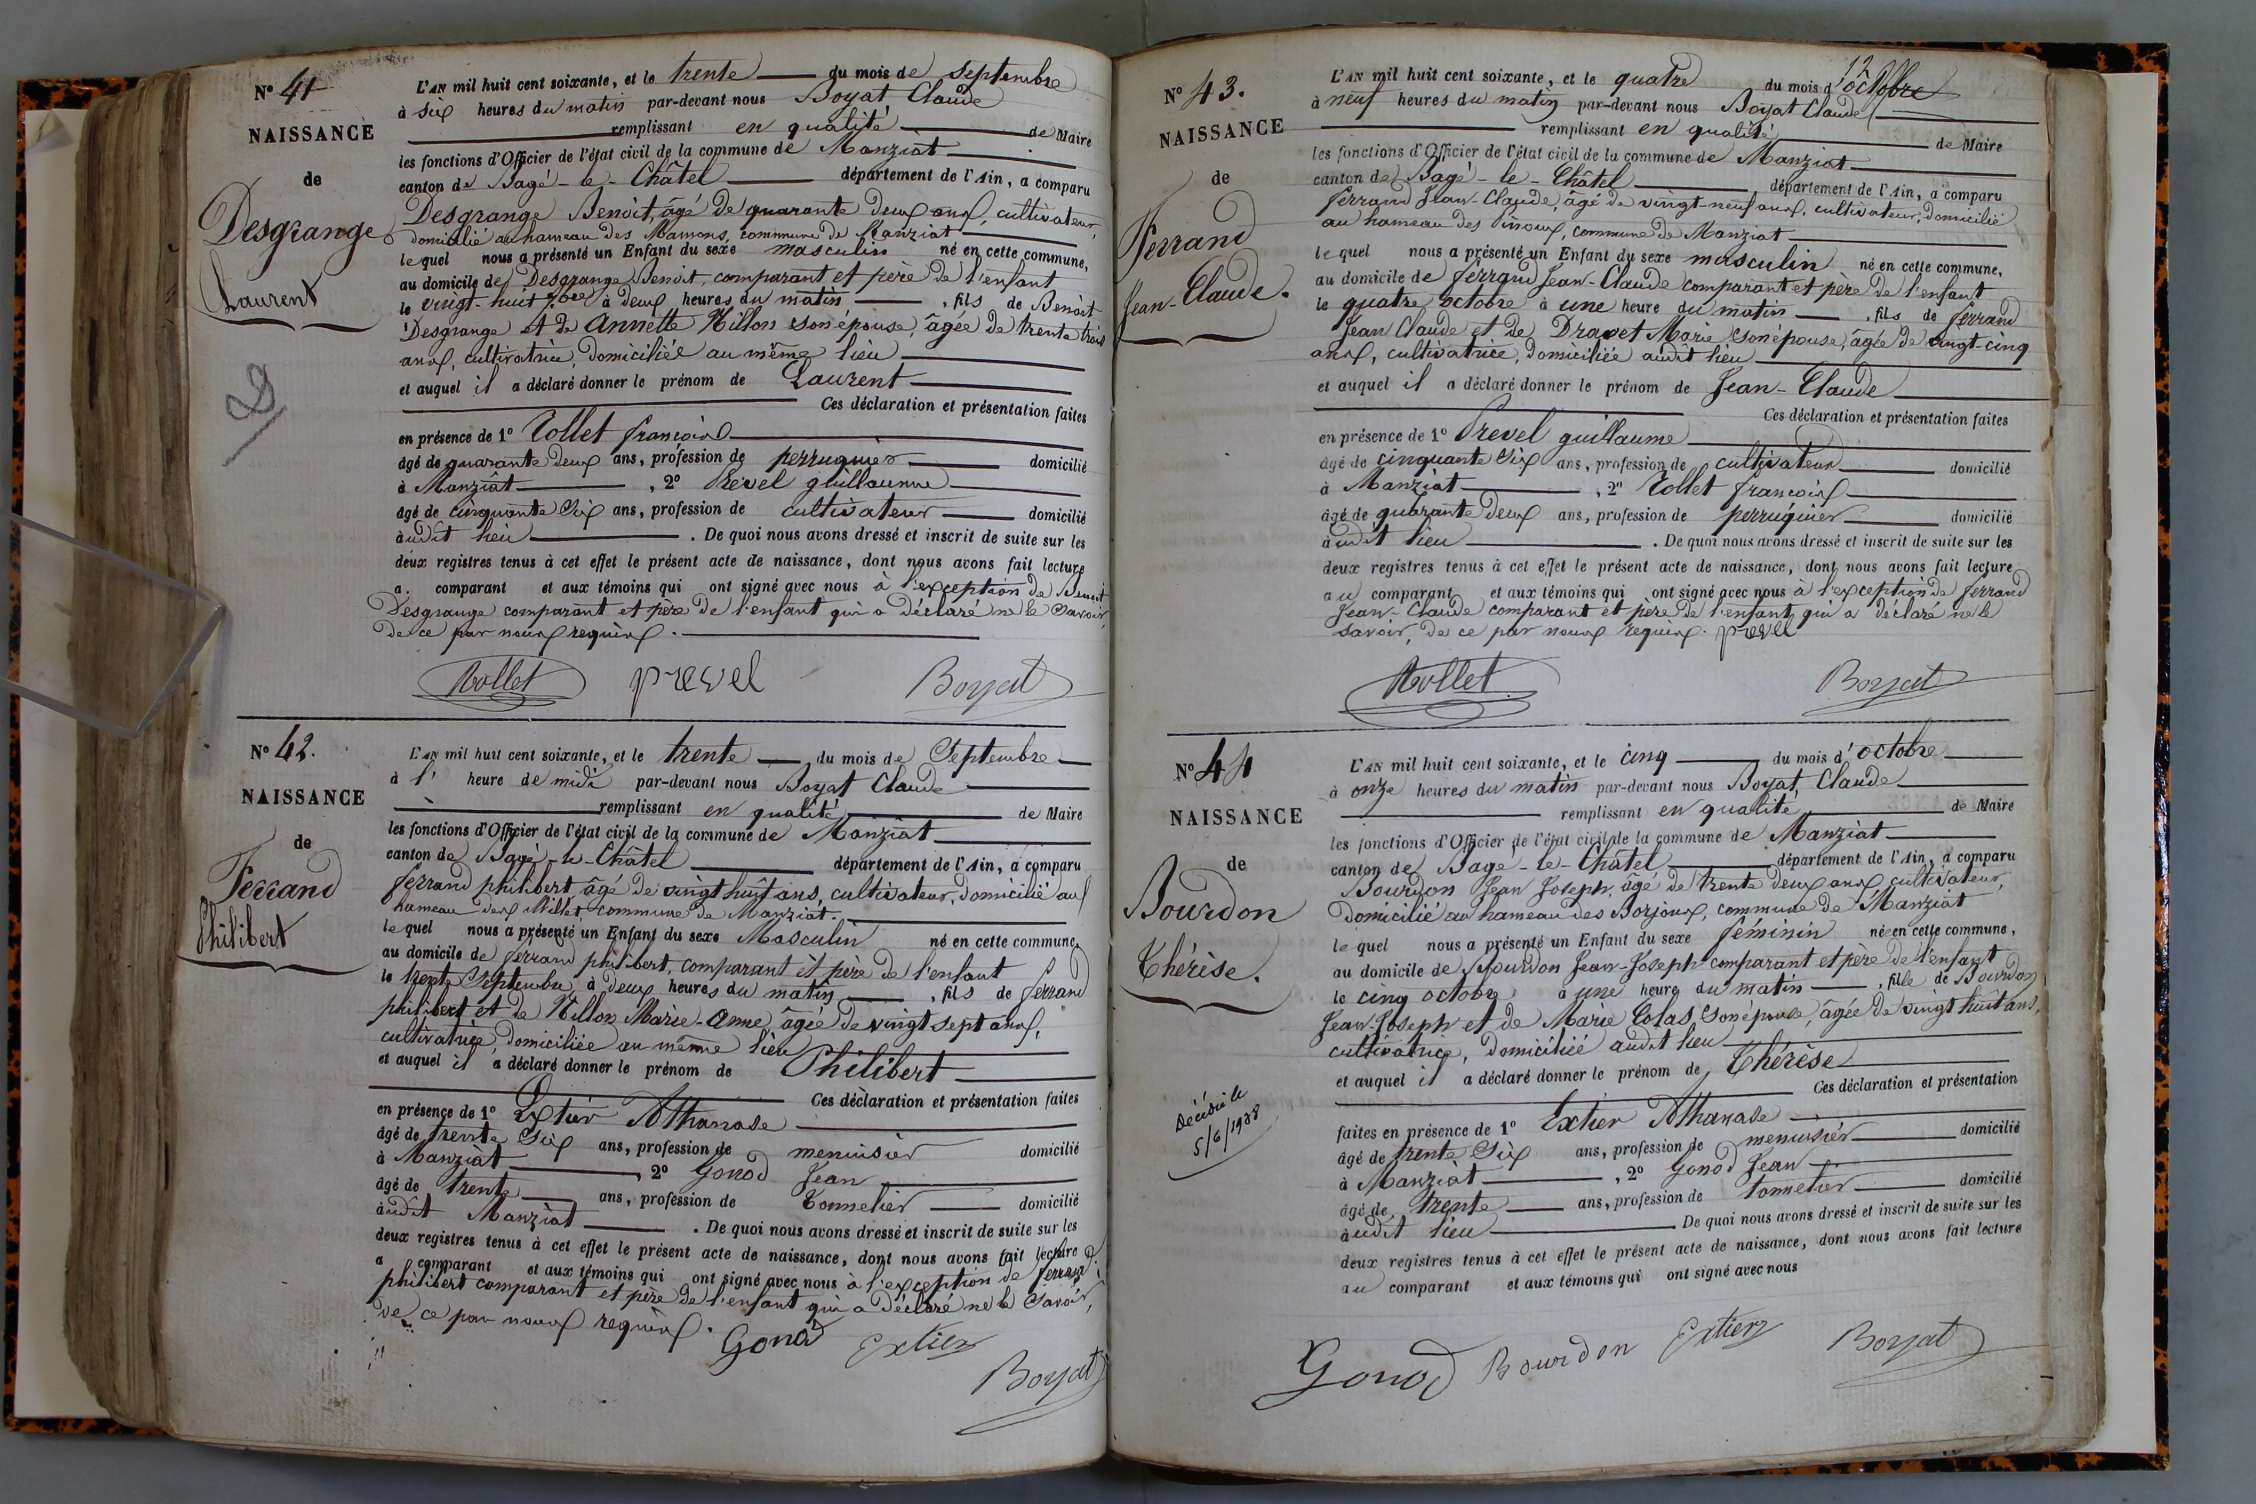 N° 41
NAISSANCE
de
Desgrange
Laurent
L'AN mil huit cent soixante, et le trente du mois de Septembre
à six heures du matin par-devant nous Boyat Claude
remplissant en qualité de Maire
les fonctions d'Officier de l'état civil de la commune de Manziat
canton de Bagé-le-Châtel département de l'Ain, a comparu
Desgrange Benoit, âgé de quarante deux ans, cultivateur,
domicilié au hameau des Mamons, commune de Manziat
lequel nous a présenté un Enfant du sexe masculin né en cette commune,
au domicile de Desgrange Benoit, comparant et père de l'enfant
le vingt-huit 7bre à deux heures du matin, fils de Benoit
Desgrange et de Annette Nillon son épouse, âgée de trente trois
ans, cultivatrice, domiciliée au même lieu
et auquel il a déclaré donner le prénom de Laurent
Ces déclaration et présentation faites
en présence de 1° Tollet françois
âgé de quarante deux ans, profession de perruquier domicilié
à Manziat, 2° Prevel guillaume
âgé de cinquante six ans, profession de cultivateur domicilié
audit lieu. De quoi nous avons dressé et inscrit de suite sur les
deux registres tenus à cet effet le présent acte de naissance, dont nous avons fait lecture
a. comparant et aux témoins qui ont signé avec nous à l'exception de Benoit
Desgrange comparant et père de l'enfant qui a déclaré ne le savoir,
de ce par nous requis.
Tollet prevel Boyat
N° 42.
NAISSANCE
de
Ferrand
Philibert
L'AN mil huit cent soixante, et le trente du mois de Septembre
à l' heure de midi par-devant nous Boyat Claude
remplissant en qualité de Maire
les fonctions d'Officier de l'état civil de la commune de Manziat
canton de Bagé-le-Châtel département de l'Ain, a comparu
ferrand philibert âgé de vingt huit ans, cultivateur, domicilié au
hameau des Millet, commune de Manziat.
lequel nous a présenté un Enfant du sexe Masculin né en cette commune,
au domicile de ferrand philibert, comparant et père de l'enfant
le trente Septembre, à deux heures du matin, fils de ferrand
philibert et de Nillon Marie-Anne, âgée de vingt sept ans,
cultivatrice, domiciliée au même lieu
et auquel il a déclaré donner le prénom de Philibert
Ces déclaration et présentation faites
en présence de 1° Extier Athanase
âgé de trente six ans, profession de menuisier domicilié
à Manziat, 2° Gonod Jean
âgé de trente ans, profession de Tonnelier domicilié
audit Manziat. De quoi nous avons dressé et inscrit de suite sur les
deux registres tenus à cet effet le présent acte de naissance, dont nous avons fait lecture
a comparant et aux témoins qui ont signé avec nous à l'exception de ferrand
philibert comparant et père de l'enfant qui a déclaré ne le savoir,
de ce par nous requis.
Gonod Extier
Boyat
12
N° 43.
NAISSANCE
de
Ferrand
Jean-Claude.
L'AN mil huit cent soixante, et le quatre du mois d'octobre
à neuf heures du matin par-devant nous Boyat Claude
remplissant en qualité de Maire
les fonctions d'Officier de l'état civil de la commune de Manziat
canton de Bagé-le-Châtel département de l'Ain, a comparu
ferrand Jean-Claude, âgé de vingt-neuf ans, cultivateur, domicilié
au hameau des Pinoux, commune de Manziat
lequel nous a présenté un Enfant du sexe masculin né en cette commune,
au domicile de ferrand Jean-Claude comparant et père de l'enfant
le quatre octobre à une heure du matin, fils de ferrand
Jean Claude et de Dravet Marie son épouse, âgée de vingt-cinq
ans, cultivatrice, domiciliée audit lieu
et auquel il a déclaré donner le prénom de Jean-Claude
Ces déclaration et présentation faites
en présence de 1° Prevel guillaume
âgé de cinquante six ans, profession de cultivateur domicilié
à Manziat, 2° Tollet françois
âgé de quarante deux ans, profession de perruquier domicilié
audit lieu. De quoi nous avons dressé et inscrit de suite sur les
deux registres tenus à cet effet le présent acte de naissance, dont nous avons fait lecture
au comparant et aux témoins qui ont signé avec nous à l'exception de ferrand
Jean-Claude comparant et père de l'enfant qui a déclaré ne le
savoir, de ce par nous requis. prevel
Tollet Boyat
N° 44
NAISSANCE
de
Bourdon
Thérèse.
Décédée le
5/6/1938
L'AN mil huit cent soixante, et le cinq du mois d'octobre
à onze heures du matin par-devant nous Boyat Claude
remplissant en qualité de Maire
les fonctions d'Officier de l'état civil de la commune de Manziat
canton de Bagé-le-Châtel département de l'Ain, a comparu
Bourdon Jean Joseph, âgé de trente deux ans, cultivateur,
domicilié au hameau des Borjoux, commune de Manziat
lequel nous a présenté un Enfant du sexe féminin née en cette commune,
au domicile de Bourdon Jean-Joseph comparant et père de l'enfant
le cinq octobre à une heure du matin, fille de Bourdon
Jean-Joseph et de Marie Colas son épouse, âgée de vingt huit ans,
cultivatrice, domiciliée audit lieu
et auquel il a déclaré donner le prénom de Thérèse
Ces déclaration et présentation
faites en présence de 1° Extier Athanase
âgé de trente six ans, profession de menuisier domicilié
à Manziat, 2° Gonod Jean
âgé de trente ans, profession de tonnelier domicilié
audit lieu. De quoi nous avons dressé et inscrit de suite sur les
deux registres tenus à cet effet le présent acte de naissance, dont nous avons fait lecture
au comparant et aux témoins qui ont signé avec nous
Gonod Bourdon Extier Boyat